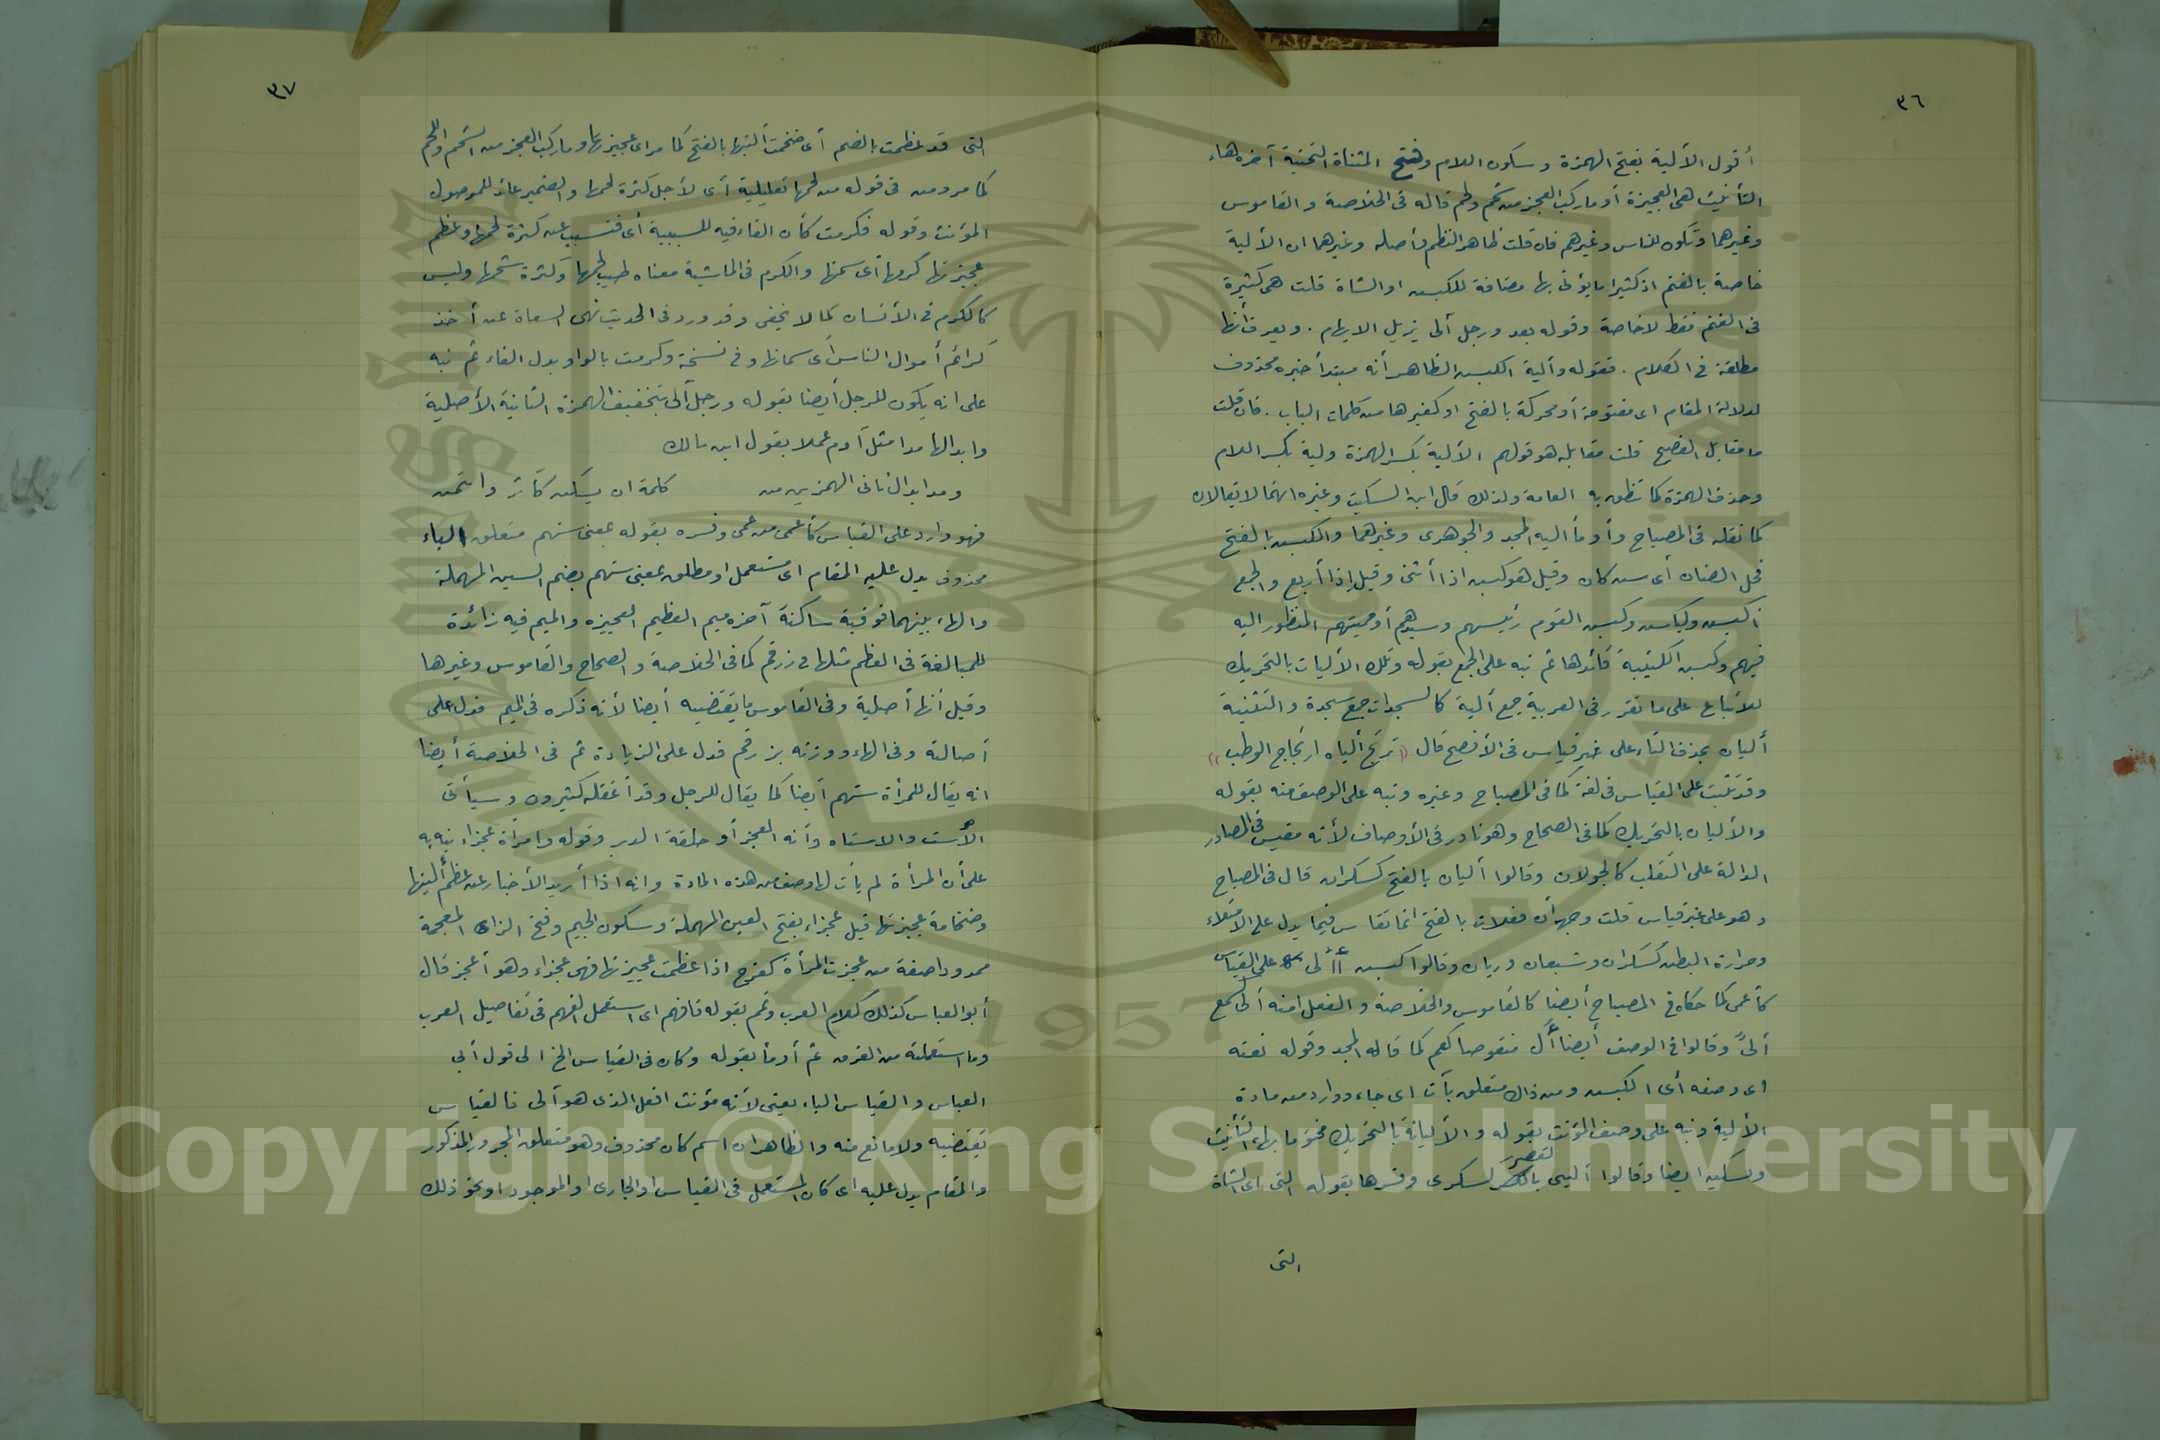 ٣٦
أقول الألية بفتح الهمزة وسكون اللام وفتح المثناة التحتية آخره هاء
التأنيث هى العجيزة أو ما ركب العجز من شحم ولحم قاله فى الخلاصة والقاموس
وغيرهما وتكون للناس وغيرهم فان قلت ظاهر النظم وأصله وغيرهما ان الألية
خاصة بالغنم اذ كثيرا ما يؤتى بها مضافة للكبش او الشاة قلت هى كثيرة
فى الغنم فقط لا خاصة وقوله بعد ورجل آلى يزيل الايهام . ويعرف أنها
مطلقة فى الكلام . فقوله وألية الكبش الظاهر أنه مبتدأ خبره محذوف
لدلالة المقام اى مفتوحة أو محركة بالفتح او كغيرها من كلمات الباب . فان قلت
ما مقابل الفصيح قلت مقابله هو قولهم الألية بكسر الهمزة ولية بكسر اللام
وحذف الهمزة كما تنطق به العامة ولذلك قال ابن السكيت وغيره انهما لا يقالان
كما نقله فى المصباح وأومأ اليه المجد والجوهرى وغيرهما والكبش بالفتح
فحل الضأن أى سن كان وقيل هو كبش اذا أثنى وقيل إذا أربع والجمع
أكبش وكباش وكبش القوم رئيسهم وسيدهم أو حميتهم المنظور اليه
فيهم وكبش الكتيبة قائدها ثم نبه على الجمع بقوله وتلك الأليات بالتحريك
للاتباع على ما تقرر فى العربية جمع ألية كالسجدات جمع سجدة والتثنية
أليان بحذف التاء على غير قياس فى الأفصح قال ((ترتج ألياه ارتجاج الوطب))
وقد تثبت على القياس فى لغة كما فى المصباح وغيره ونبه على الوصف منه بقوله
والأليان بالتحريك كما فى الصحاح وهو نادر فى الأوصاف لأنه مقيس فى المصادر
الدالة على التقلب كالجولان وقالوا أليان بالفتح كسكران قال فى المصباح
وهو على غير قياس قلت وجهه أن فعلان بالفتح انما تقاس فيما يدل على الامتلاء
وحرارة البطن كسكران وشبعان وريان وقالوا كبش أألى على القياس
كأعمى كما حكاه فى المصباح أيضا كالقاموس والخلاصة والفعل منه ألى كسمع
ألىً وقالوا فى الوصف أيضا ألٍ منقوصا كعم كما قاله المجد وقوله نعته
اى وصفه أى الكبش ومن ذاك متعلق بآت اى جاء ووارد من مادة
الألية ونبه على وصف المؤنث بقوله والأليانة بالتحريك مختوما بهاء التأنيث
وتسكينه ايضا وقالوا أليى بالقصر كسكرى وفسرها بقوله التى اى الشاة
التى
٣٧
التى قد عظمت بالضم أى ضخمت أليتها بالفتح كما مر اى عجيزتها وما ركب العجز من الشحم واللحم
كما مر ومن فى قوله من لحمها تعليلية أى لأجل كثرة لحمها والضمير عائد للموصول
المؤنث وقوله فكرمت كأن الفاء فيه للسببية أى فتسبب عن كثرة لحمها وعظم
عجيزتها كرمها أى سمنها والكرم فى الماشية معناه طيب لحمها وكثرة شحمها وليس
كالكرم فى الأنسان كما لا يخفى وقد ورد فى الحديث نهى السعاة عن أخذ
كرائم أموال الناس أى سمانها وفى نسخة وكرمت بالواو بدل الفاء ثم نبه
على انه يكون للرجل أيضا بقوله ورجل آلى بتخفيف الهمزة الثانية الأصلية
وابدالها مدا مثل آدم عملا بقول ابن مالك
ومدا ابدل ثانى الهمزين من كلمة ان يسكن كآثر وائتمن
فهو وارد على القياس كأعمى من عمى وفسره بقوله بمعنى ستهم متعلق الباء
محذوف يدل عليه المقام اى مستعمل او مطلق بمعنى ستهم بضم السين المهملة
والهاء بينهما فوقية ساكنة آخره ميم العظيم العجيزه والميم فيه زائدة
للمبالغة فى العظم مثلها فى زرقم كما فى الخلاصة والصحاح والقاموس وغيرها
وقيل أنها أصلية وفى القاموس ما يقتضيه أيضا لأنه ذكره فى الميم فدل على
أصالته وفى الهاء ووزنه بزرقم فدل على الزيادة ثم فى الخلاصة أيضا
انه يقال للمرأة ستهم أيضا كما يقال للرجل وقد أغفله كثيرون وسيأتى
الأست والاستاه وأنه العجز أو حلقة الدبر وقوله وامرأة عجزاء نبه به
على أن المرأة لم يأت لها وصف من هذه المادة وانه اذا أريد الأخبار عن عظم أليتها
وضخامة عجيزتها قيل عجزاء بفتح العين المهملة وسكون الجيم وفتح الزاى المعجمة
ممدودا صفة من عجزت المرأة كفرح اذا عظمت عجيزتها فهى عجزاء وهو أعجز قال
أبو العباس كذلك كلام العرب وتمم بقوله فافهم اى استعمل الفهم فى تفاصيل العرب
وما استعملته من الفرق ثم أومأ بقوله وكان فى القياس الخ الى قول أبى
العباس والقياس الياء يعنى لأنه مؤنث افعل الذى هو آلى فالقياس
يقتضيه ولا مانع منه والظاهر ان اسم كان محذوف وهو متعلق المجرور المذكور
والمقام يدل عليه اى كان المستعمل فى القياس او الجارى او الموجود او نحو ذلك
Copyright © King Saud University
1957